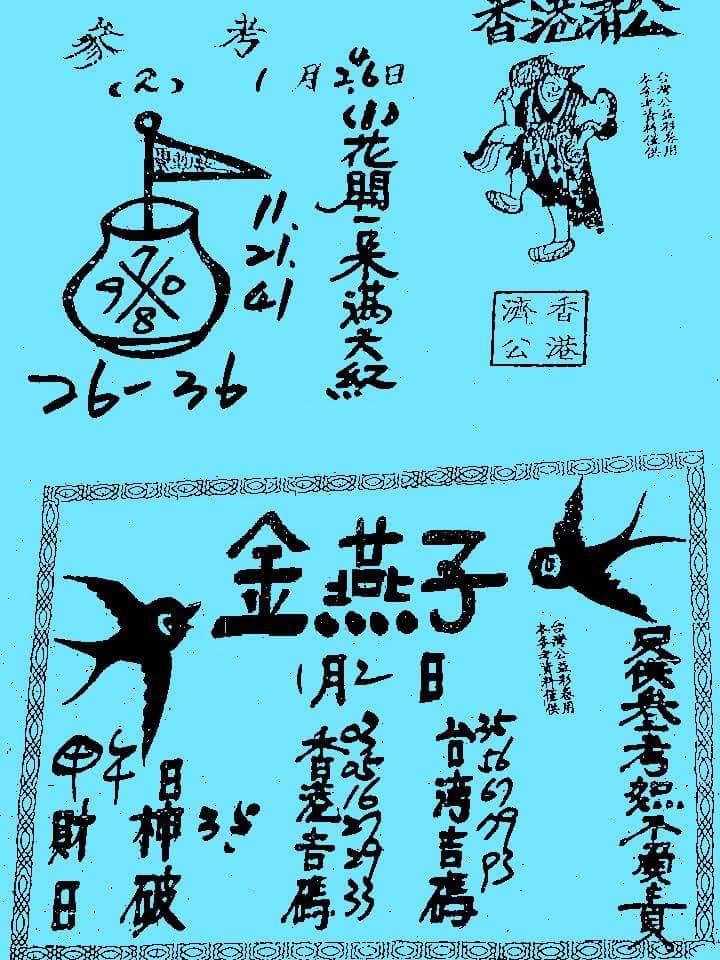 香港濟公
參考
(2)
1月2.4.6日
(1)花開一朵滿天紅
台灣公益彩卷用
本參考資料僅供
11.
21.
41
7
9 0
8
26-36
香港
濟公
金燕子
1月2日
台灣公益彩卷用
本參考資料僅供
只供參考恕不負責
台湾吉碼
35
56
67
79
93
香港吉碼
03
05
16
27
29
33
甲午日
財神破日
35.